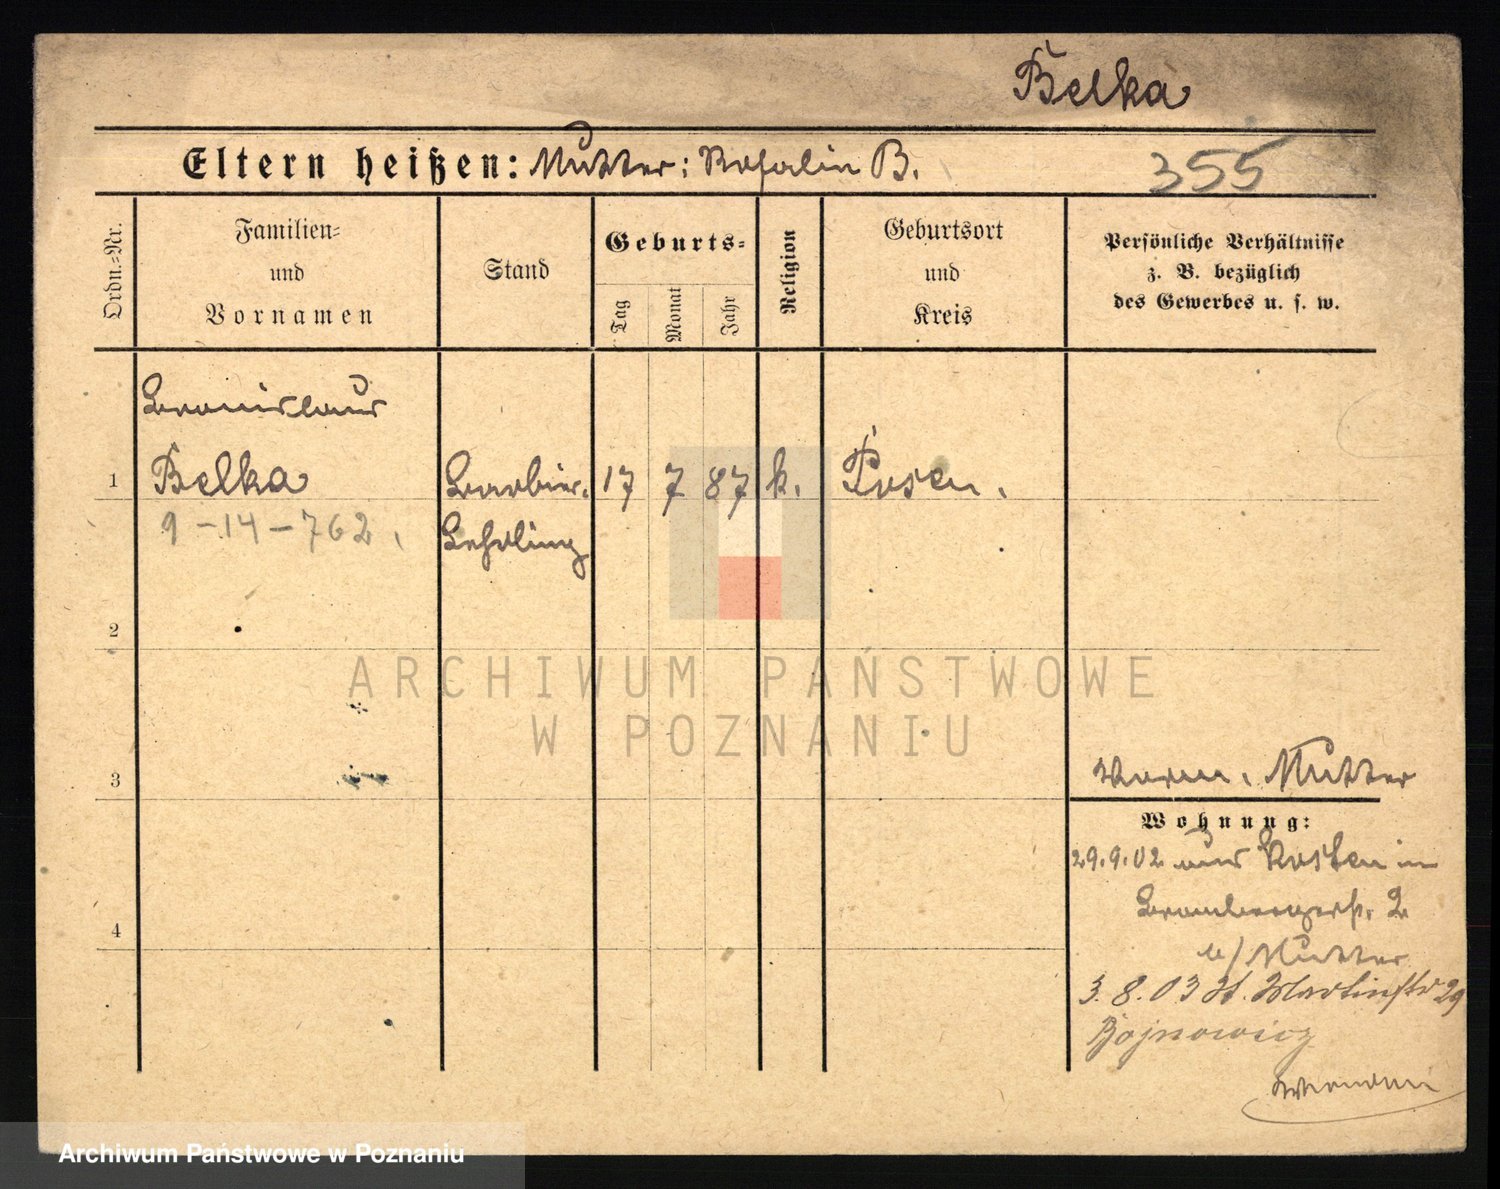 Belka
Eltern heißen: Mutter: Rosalie B.
355
Ordn.-Nr.
Familien-
und
Vornamen
Stand
Geburts-
Tag
Monat
Jahr
Religion
Geburtsort
und
Kreis
Persönliche Verhältnisse
z. B. bezüglich
des Gewerbes u. s. w.
Bronislaus
1 Belka Barbier- 17 7 87 k. Posen.
9-14-762. Lehrling
2
3
Mutter
Wohnung:
29.9.02 aus Kosten in
Brombergerstr. 2
b/ Mutter
4
3.8.03 St. Martinstr 29
Bojnowicz
ARCHIWUM PAŃSTWOWE
W POZNANIU
Archiwum Państwowe w Poznaniu